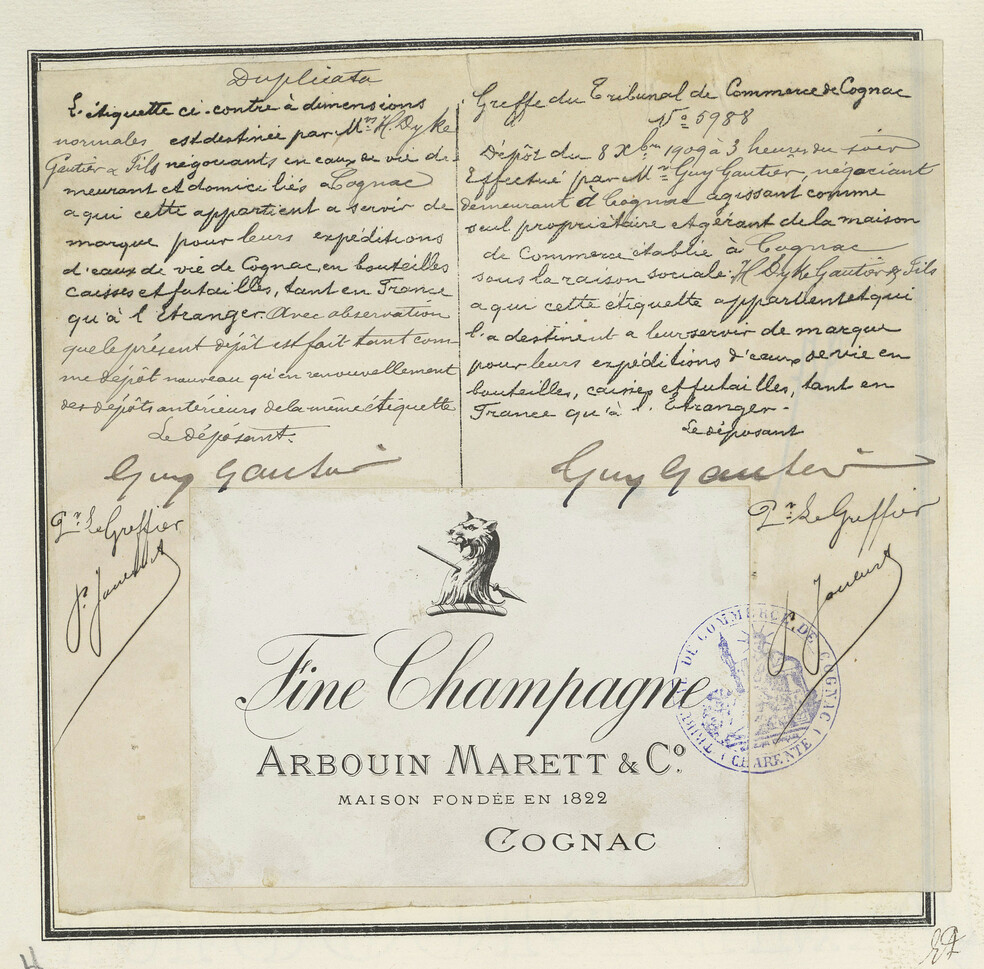 Duplicata
L'étiquette ci-contre à dimensions
normales est destinée par Mrs H. Dyke
Gautier & Fils négociants en eaux de vie de
meurant et domiciliés à Cognac
a qui cette appartient a servir de
marque pour leurs expéditions
d'eaux de vie de Cognac, en bouteilles
caisses et futailles, tant en France
qu'à l'Etranger. Avec observation
que le présent dépôt est fait tant com-
me dépôt nouveau qu'en renouvellement
des dépôts antérieurs de la même étiquette
Le déposant.
Guy Gautier
Pr Le Greffier
Greffe du Tribunal de Commerce de Cognac
No 5988
Dépôt du 8 Xbre 1909 à 3 heures du soir
Effectué par Mr Guy Gautier, négociant
demeurant à Cognac agissant comme
seul propriétaire et gérant de la maison
de Commerce établie à Cognac
sous la raison sociale: H Dyke Gautier & Fils
a qui cette étiquette appartient et qui
l'a destinent a leur servir de marque
pour leurs expéditions d'eaux de vie en
bouteilles, caisses et futailles, tant en
France qu'à l'Etranger.
Le déposant
Guy Gautier
Pr Le Greffier
Fine Champagne
ARBOUIN MARETT & Co.
MAISON FONDÉE EN 1822
COGNAC
TRIBUNAL DE COMMERCE DE COGNAC
(CHARENTE)